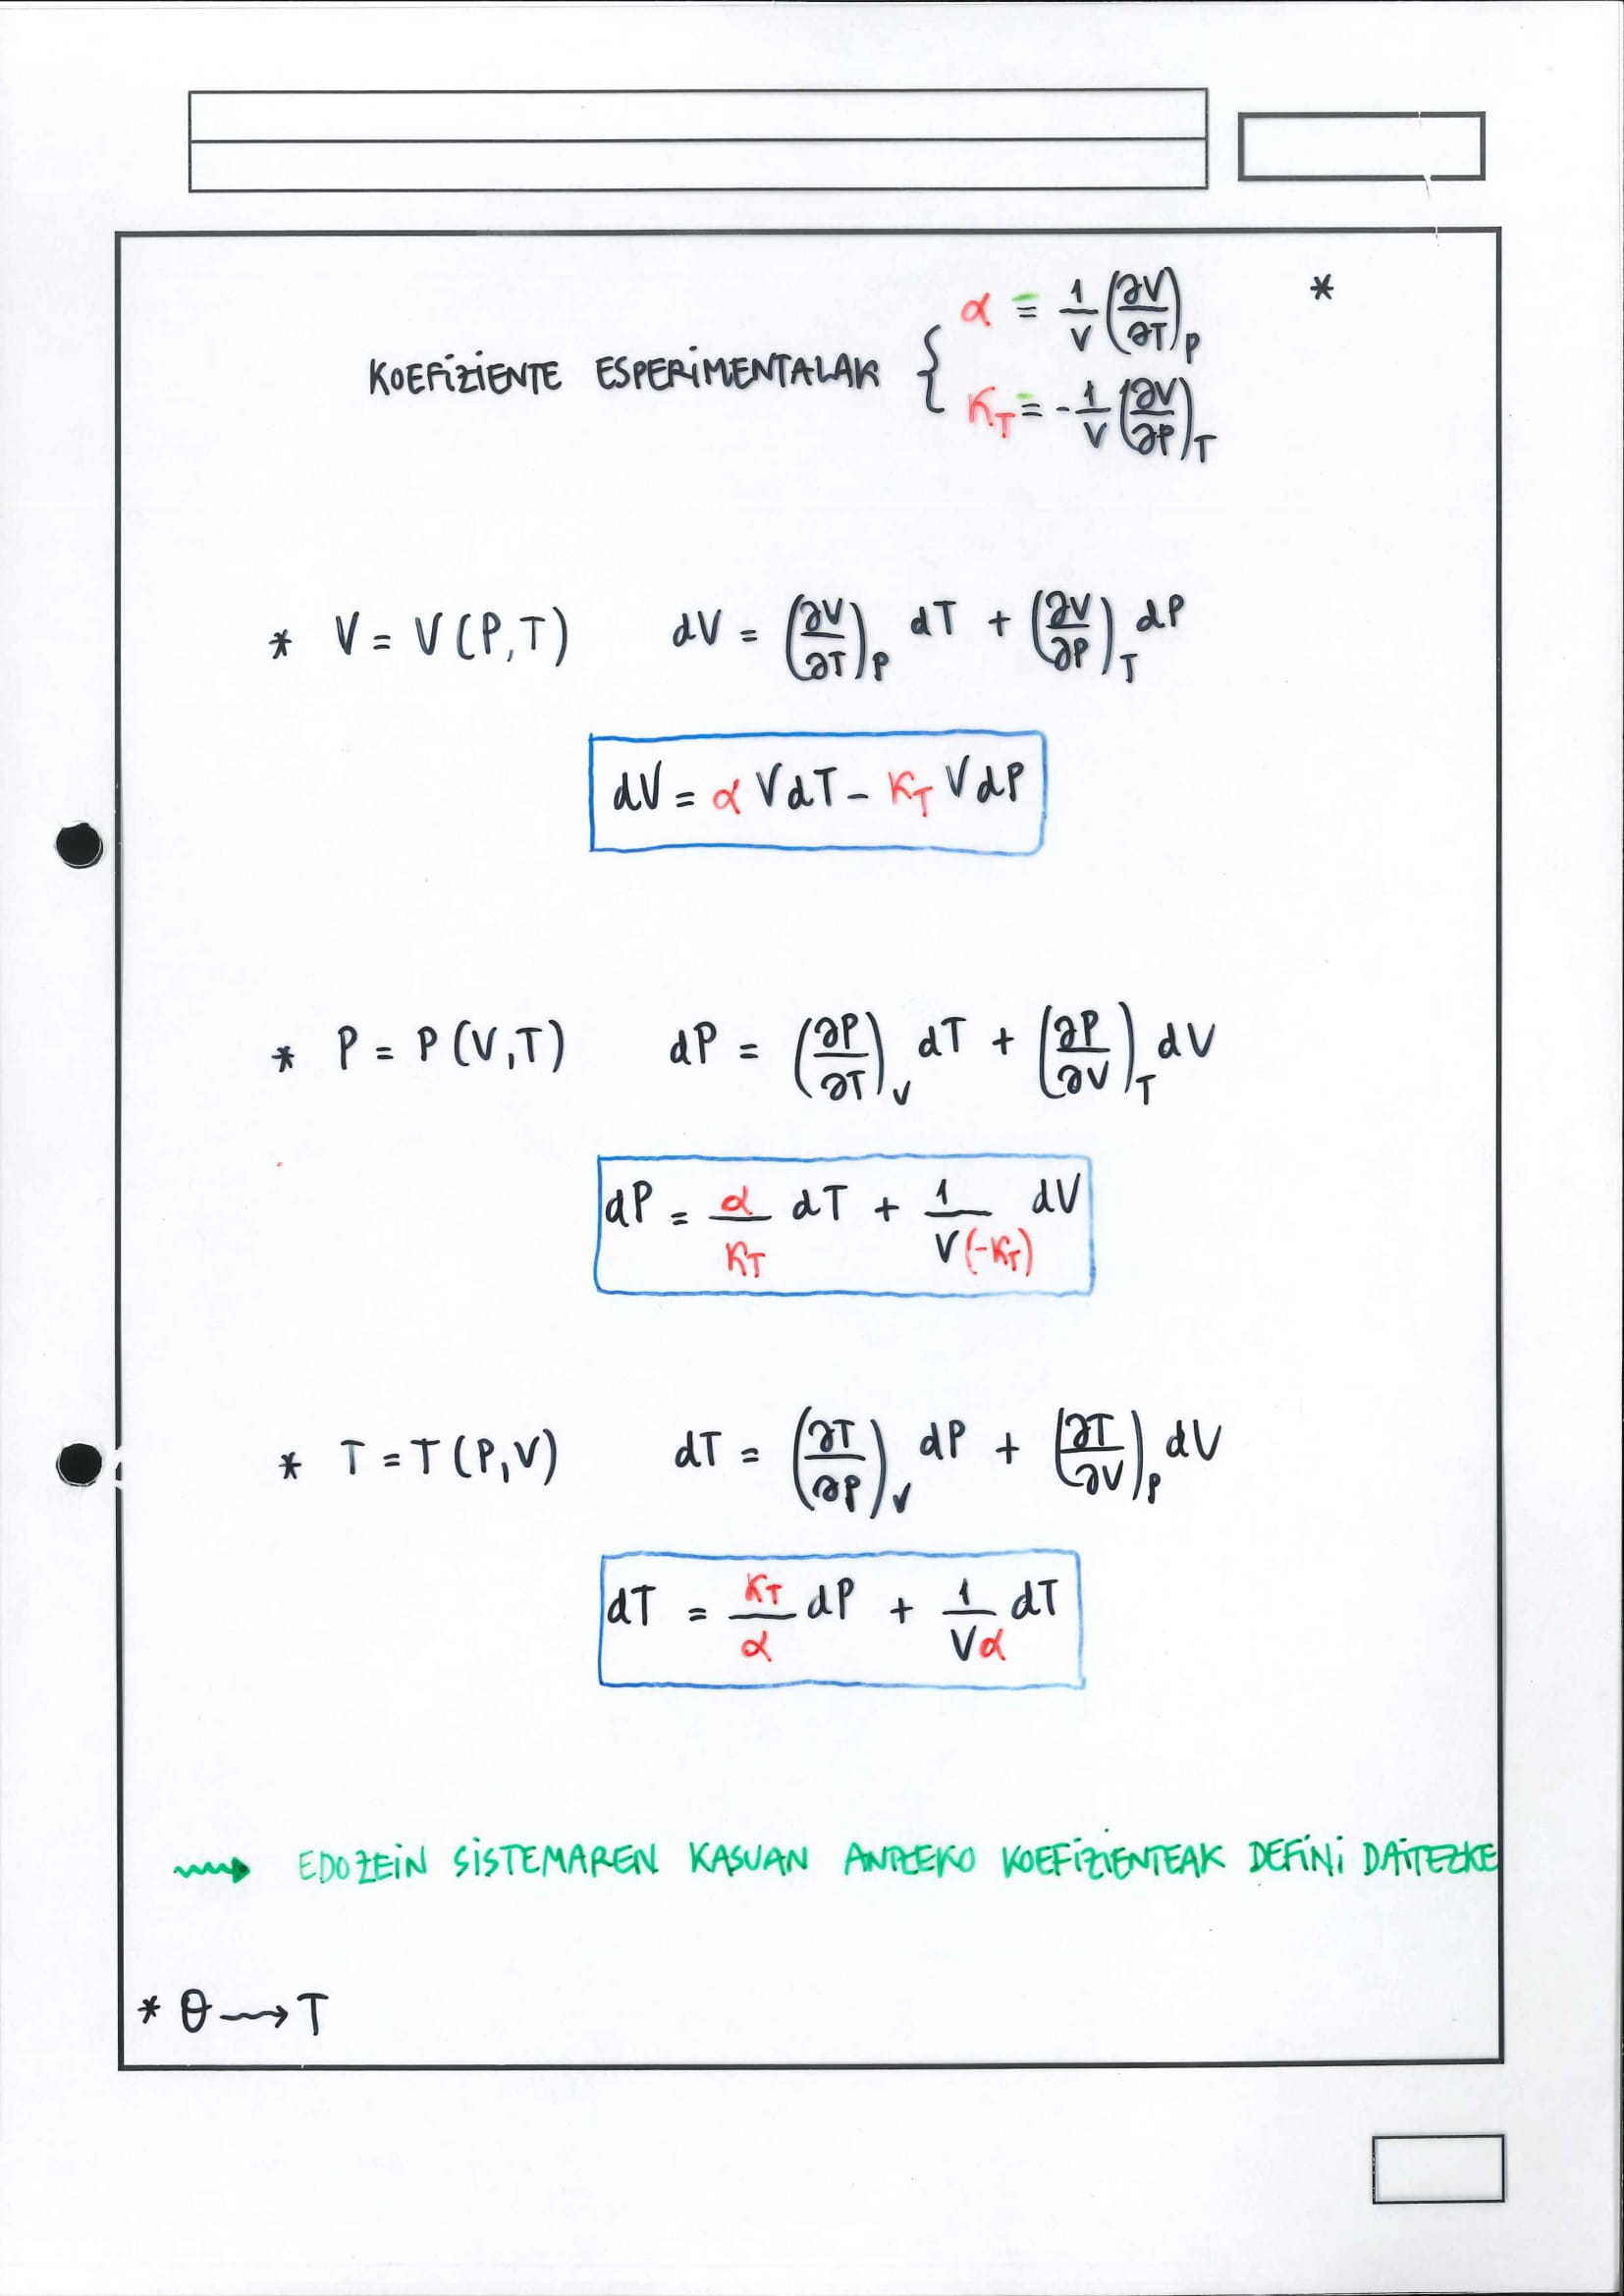 α ≡ 1/V (∂V/∂T)_P *
KOEFIZIENTE ESPERIMENTALAK {
K_T ≡ -1/V (∂V/∂P)_T
* V = V(P,T) dV = (∂V/∂T)_P dT + (∂V/∂P)_T dP
dV = α V dT - K_T V dP
* P = P(V,T) dP = (∂P/∂T)_V dT + (∂P/∂V)_T dV
dP = α/K_T dT + 1/V(-K_T) dV
* T = T(P,V) dT = (∂T/∂P)_V dP + (∂T/∂V)_P dV
dT = K_T/α dP + 1/Vα dT
⟿ EDOZEIN SISTEMAREN KASUAN ANTZEKO KOEFIZIENTEAK DEFINI DAITEZKE
* θ ⟿ T